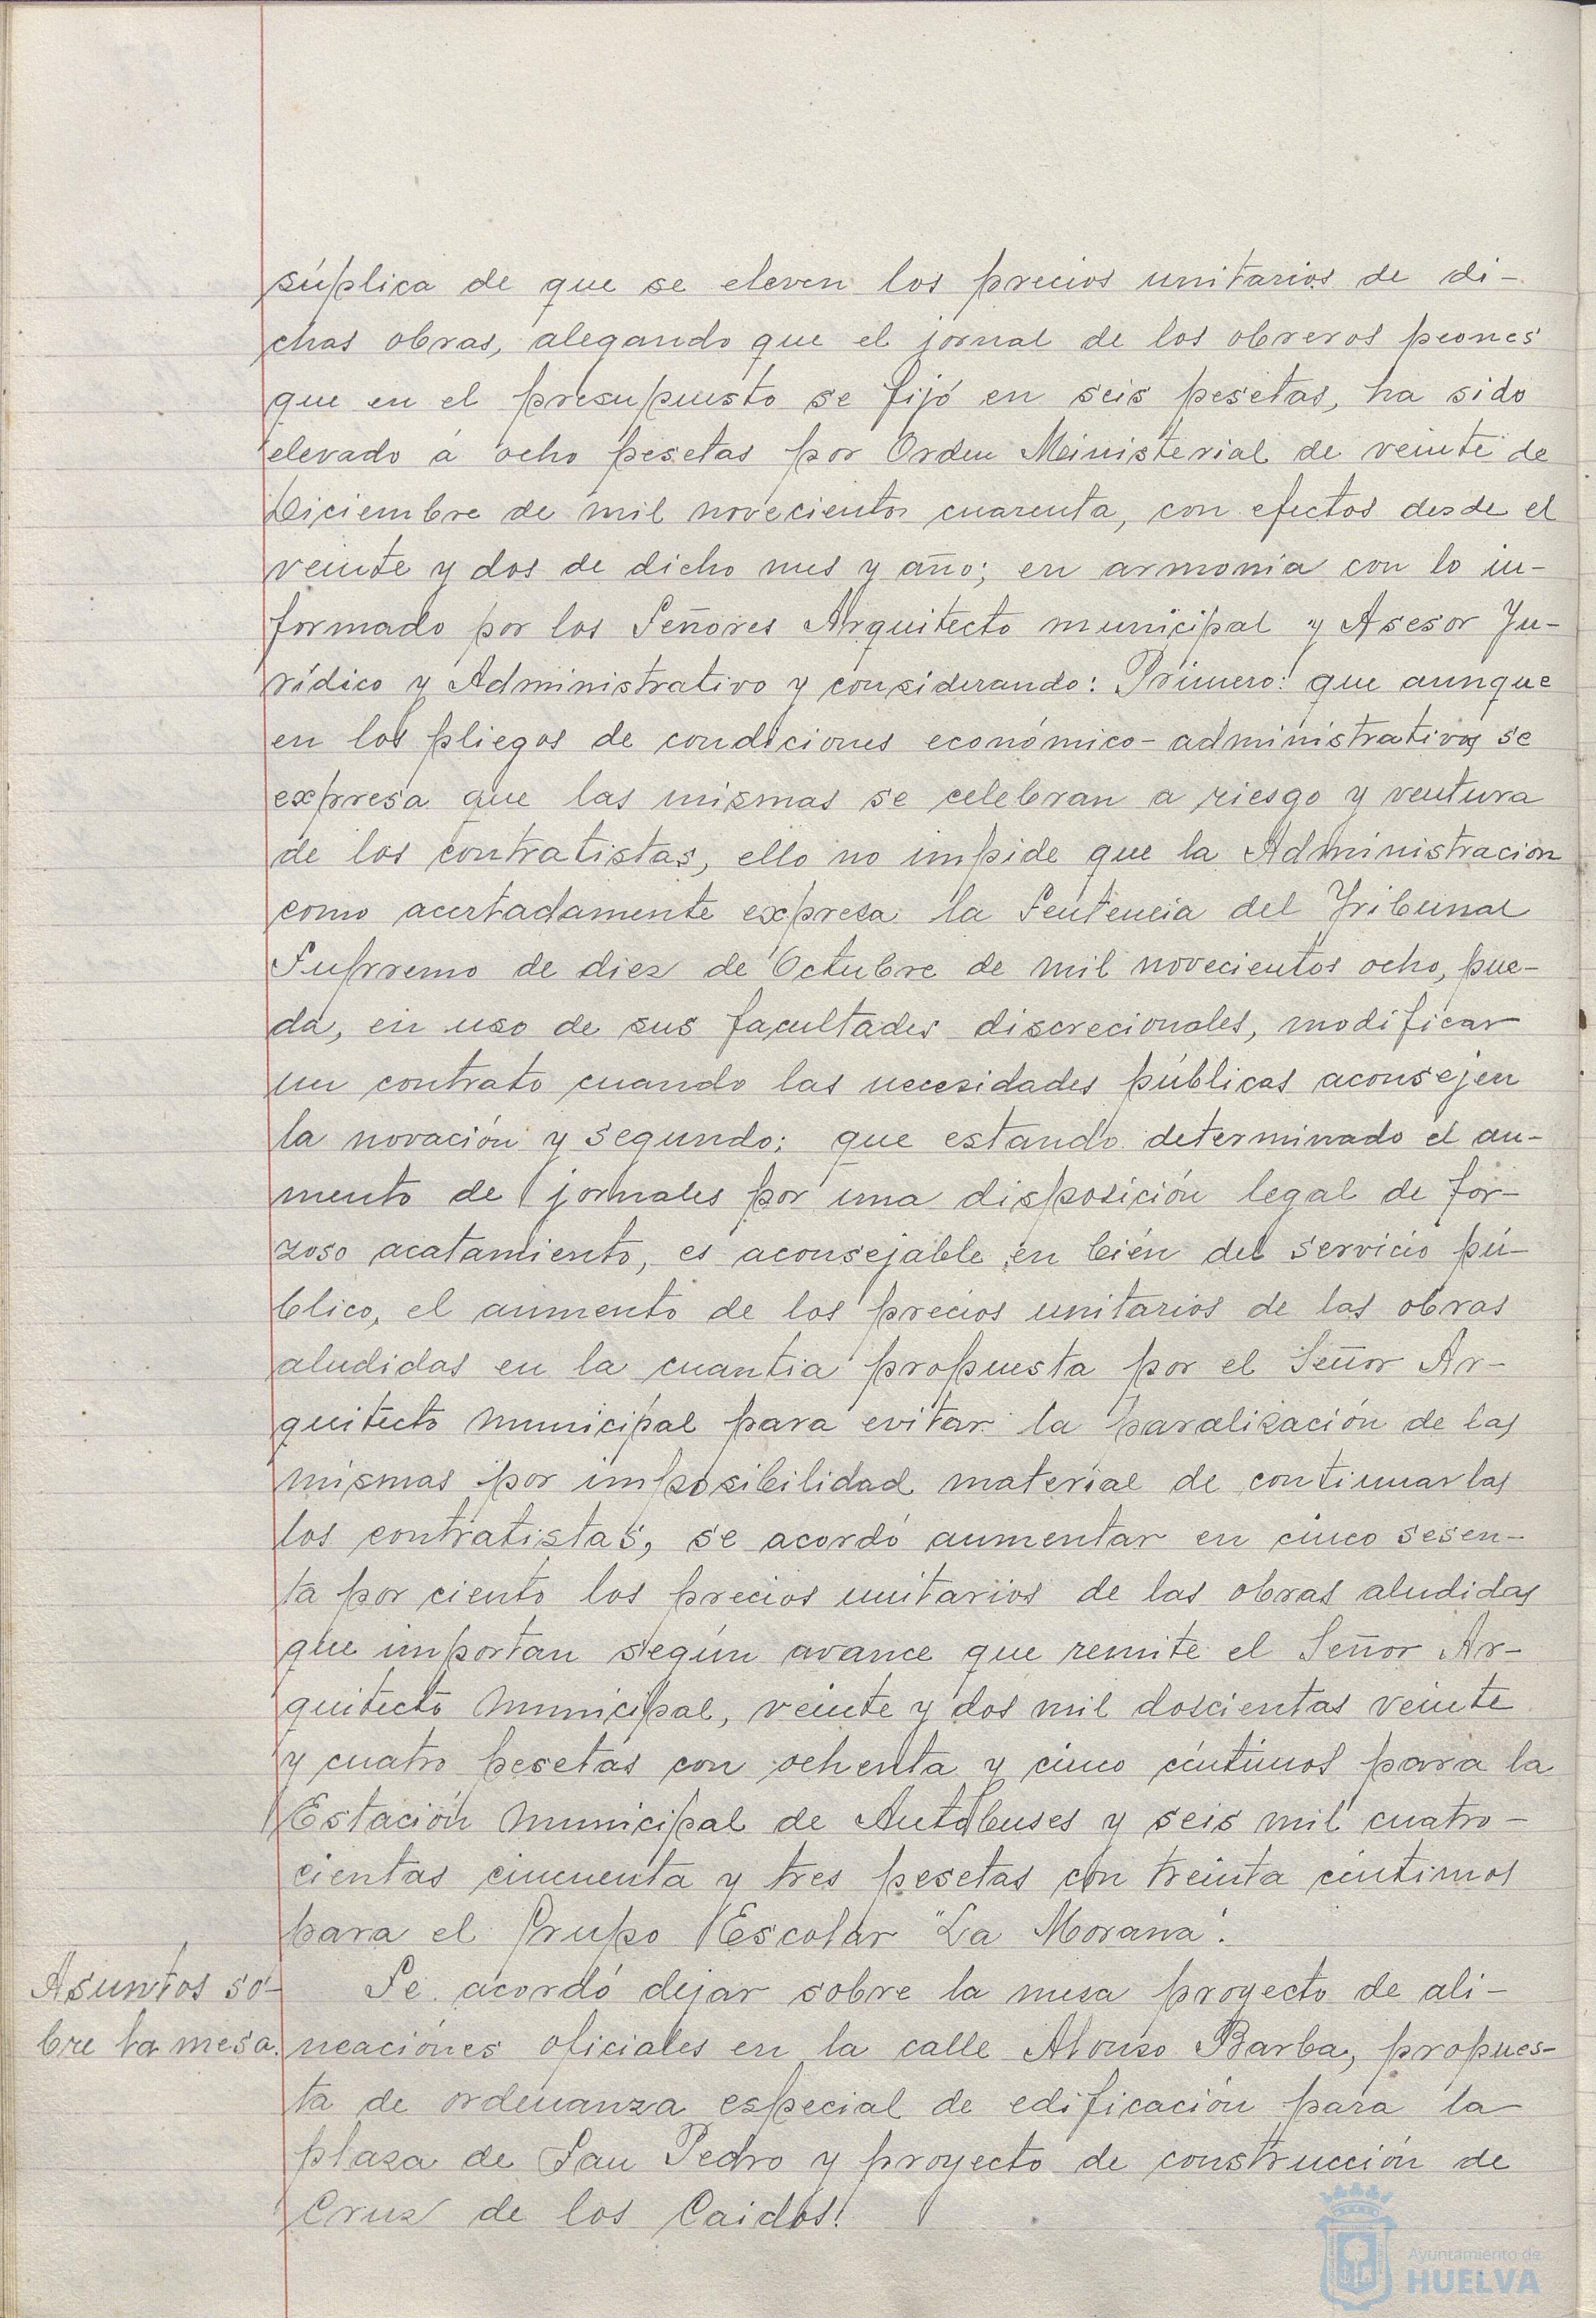 súplica de que se eleven los precios unitarios de di-
chas obras, alegando que el jornal de los obreros peones
que en el presupuesto se fijó en seis pesetas, ha sido
elevado á ocho pesetas por Orden Ministerial de veinte de
Diciembre de mil novecientos cuarenta, con efectos desde el
veinte y dos de dicho mes y año; en armonia con lo in-
formado por los Señores Arquitecto municipal y Asesor Ju-
rídico y Administrativo y considerando: Primero: que aunque
en los pliegos de condiciones económico-administrativos se
expresa que las mismas se celebran a riesgo y ventura
de los contratistas, ello no impide que la Administración
como acertadamente expresa la Sentencia del Tribunal
Supremo de diez de Octubre de mil novecientos ocho, pue-
da, en uso de sus facultades discrecionales, modificar
un contrato cuando las necesidades públicas aconsejen
la novación y segundo: que estando determinado el au-
mento de jornales por una disposición legal de for-
zoso acatamiento, es aconsejable en bién del servicio pú-
blico, el aumento de los precios unitarios de las obras
aludidas en la cuantia propuesta por el Señor Ar-
quitecto municipal para evitar la paralización de las
mismas por imposibilidad material de continuarlas
los contratistas, se acordó aumentar en cinco sesen-
ta por ciento los precios unitarios de las obras aludidas
que importan según avance que remite el Señor Ar-
quitecto Municipal, veinte y dos mil doscientas veinte
y cuatro pesetas con ochenta y cinco céntimos para la
Estación Municipal de Autobuses y seis mil cuatro-
cientas cincuenta y tres pesetas con treinta céntimos
para el Grupo Escolar "La Morana".
Asuntos so-
bre la mesa.
Se acordó dejar sobre la mesa proyecto de ali-
neaciónes oficiales en la calle Alonso Barba, propues-
ta de ordenanza especial de edificación para la
plaza de San Pedro y proyecto de construcción de
Cruz de los Caidos.
Ayuntamiento de
HUELVA